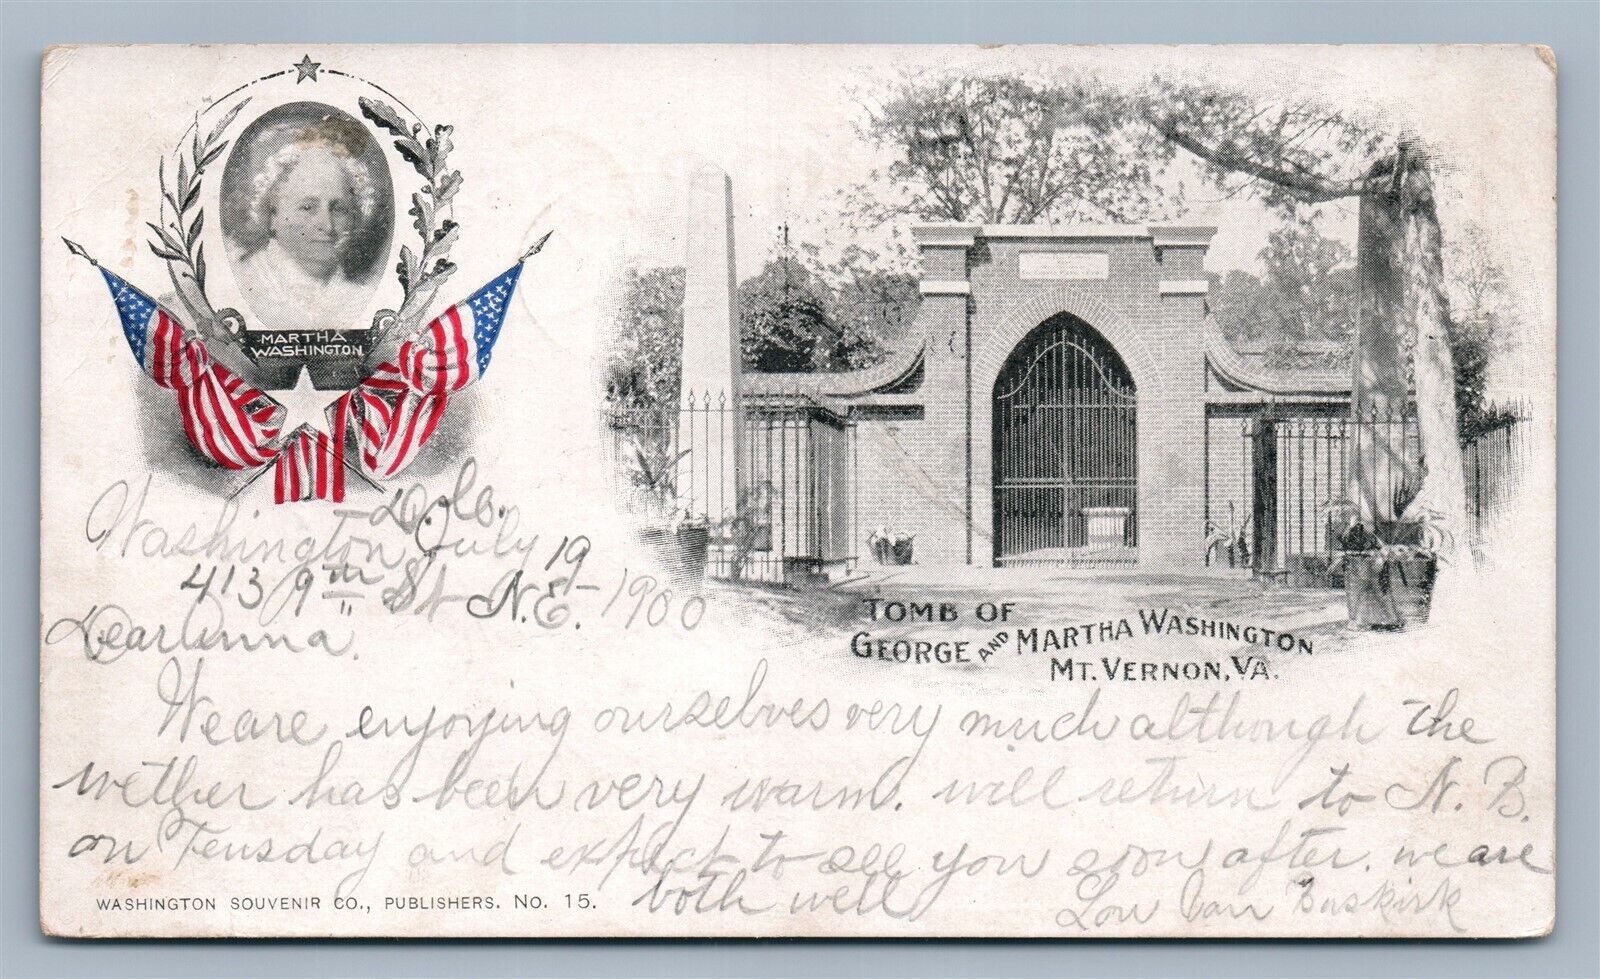 MARTHA
WASHINGTON
TOMB OF
GEORGE AND MARTHA WASHINGTON
MT. VERNON, VA.
Washington D. Co.
July 19
413 9th St N.E. 1900
Dear Anna.
We are enjoying ourselves very much although the
wether has been very warm. will return to N. B.
on Teusday and expect to see you soon after. we are
both well
Lou Van Buskirk
WASHINGTON SOUVENIR CO., PUBLISHERS. No. 15.